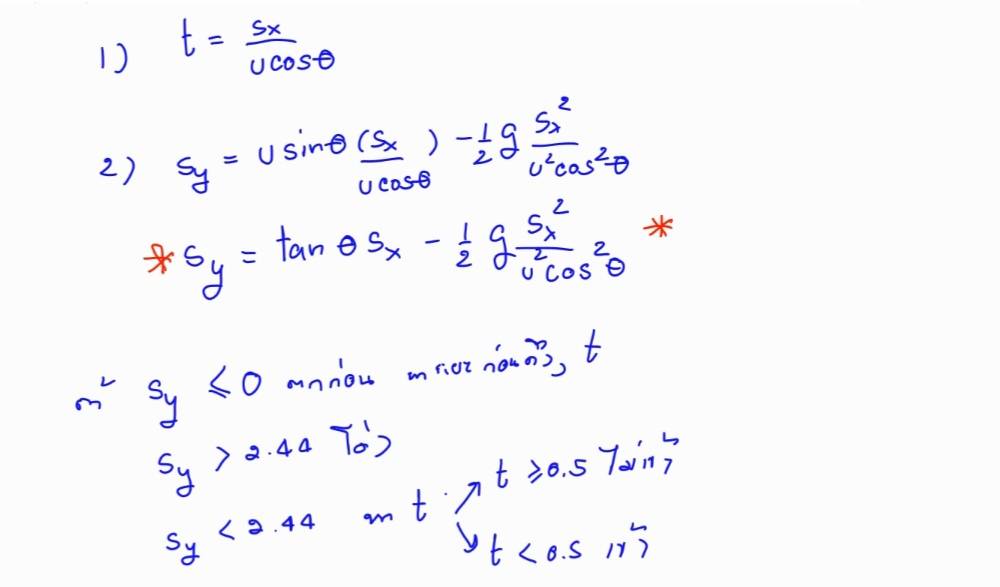 1) t = Sx / (U cosθ)
2) Sy = U sinθ (Sx / U cosθ) - 1/2 g Sx² / (U² cos²θ)
* Sy = tan θ Sx - 1/2 g Sx² / (U² cos² θ) *
ถ้า Sy ≤ 0 ตกก่อน t
Sy > 2.44 โด่ง
Sy < 2.44 หา t
t ≥ 0.5 ไม่เข้า
t < 0.5 เข้า